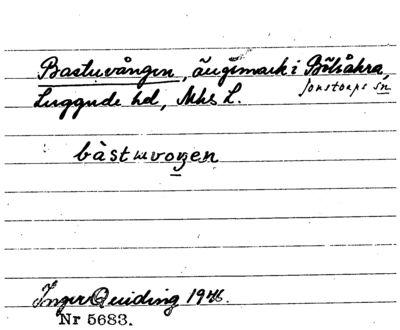 Bastuvången, ängsmark i Bölsåkra,
Jonstorps sn
Luggude hd, Mhs L.
bàstuvoŋen
Inger Quiding 1946.
Nr 5683.